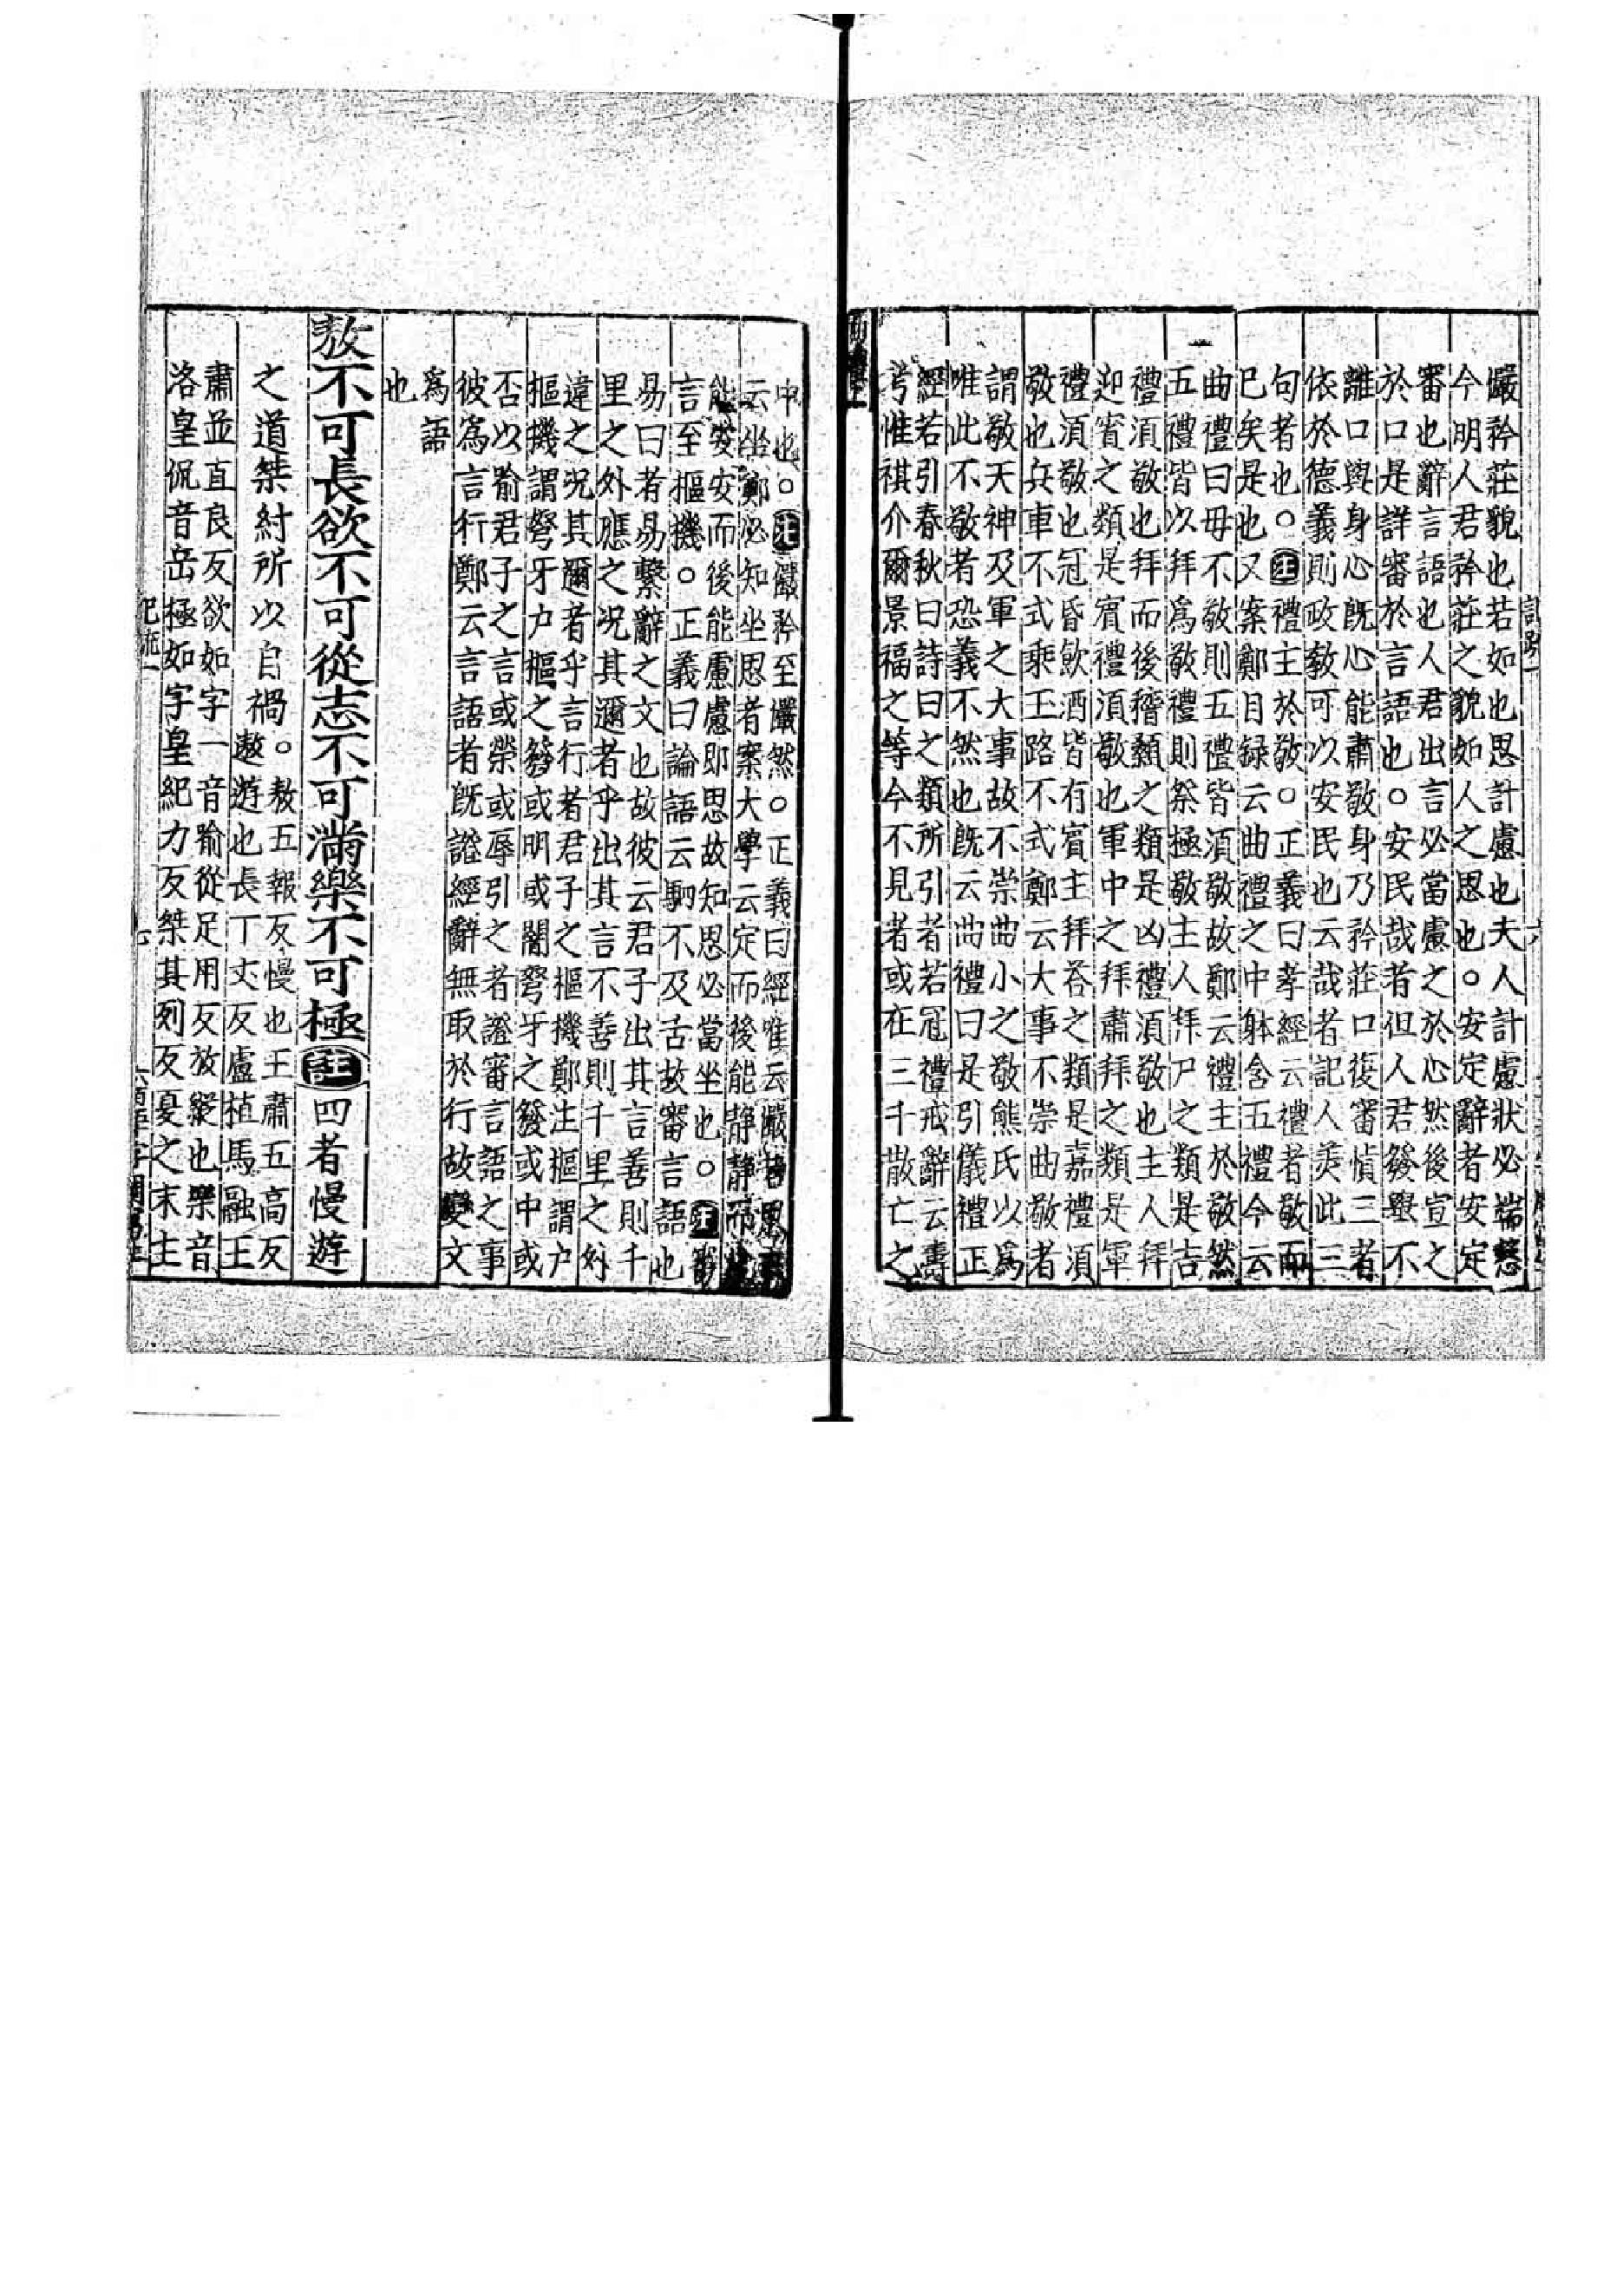 儼矜莊貌也若如也思計慮也夫人計慮狀必端慤
今明人君矜莊之貌如人之思也○安定辭者安定
審也辭言語也人君出言必當慮之於心然後宣之
於口是詳審於言語也○安民哉者但人君發舉不
離口與身心既心能肅敬身乃矜莊口復審慎三者
依於德義則政教可以安民也云哉者記人美此三
句者也○注禮主於敬○正義曰孝經云禮者敬而
已矣是也又案鄭目録云曲禮之中躰含五禮今云
曲禮曰毋不敬則五禮皆須敬故鄭云禮主於敬然
五禮皆以拜爲敬禮則祭極敬主人拜尸之類是吉
禮須敬也拜而後稽顙之類是凶禮須敬也主人拜
迎賓之類是賓禮須敬也軍中之拜肅拜之類是軍
禮須敬也冠昏飲酒皆有賓主拜荅之類是嘉禮須
敬也兵車不式乘玉路不式鄭云大事不崇曲敬者
謂敬天神及軍之大事故不崇曲小之敬熊氏以爲
唯此不敬者恐義不然也既云曲禮曰是引儀禮正
經若引春秋曰詩曰之類所引者若冠禮戒辭云壽
考惟祺介爾景福之等今不見者或在三千散亡之
中也○注儼矜至儼然○正義曰經唯云儼若思
云坐鄭必知坐思者案大學云定而後能静静而
能安安而後能慮慮即思故知思必當坐也○注審
言至樞機○正義曰論語云駟不及舌故審言語也
易曰者易繫辭之文也故彼云君子出其言善則千
里之外應之况其邇者乎出其言不善則千里之外
違之况其邇者乎言行者君子之樞機鄭注樞謂户
樞機謂弩牙户樞之發或明或闇弩牙之發或中或
否以喻君子之言或榮或辱引之者證審言語之事
彼爲言行鄭云言語者既證經辭無取於行故變文
爲語
也
敖不可長欲不可從志不可滿樂不可極注四者慢遊
之道桀紂所以自禍○敖五報反慢也王肅五高反
遨遊也長丁丈反盧植馬融王
肅並直良反欲如字一音喻從足用反放縱也樂音
洛皇侃音岳極如字皇紀力反桀其列反夏之末主